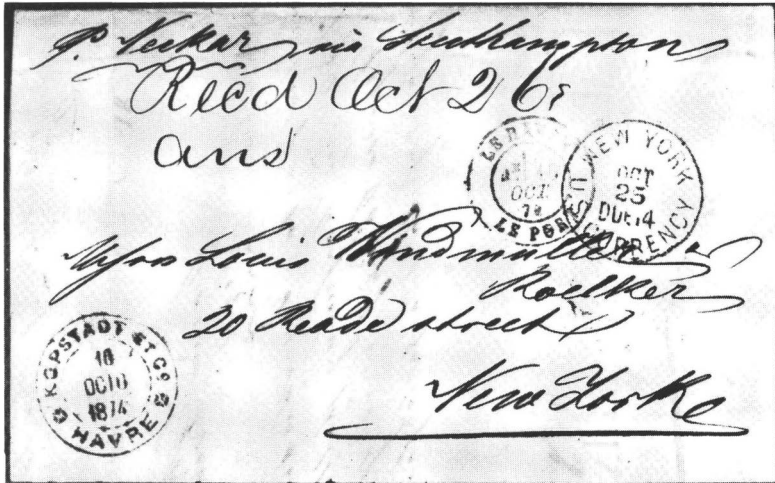 p. Neckar via Southampton
Recd Oct 26
ans
LE PORT
OCT
LE PORT
NEW YORK
OCT
25
DUE 14
U.S. CURRENCY
Mess Louis Windmuller
Roelker
20 Reade street
New York
KOPSTADT ET Co
10
OCTO
1874
HAVRE